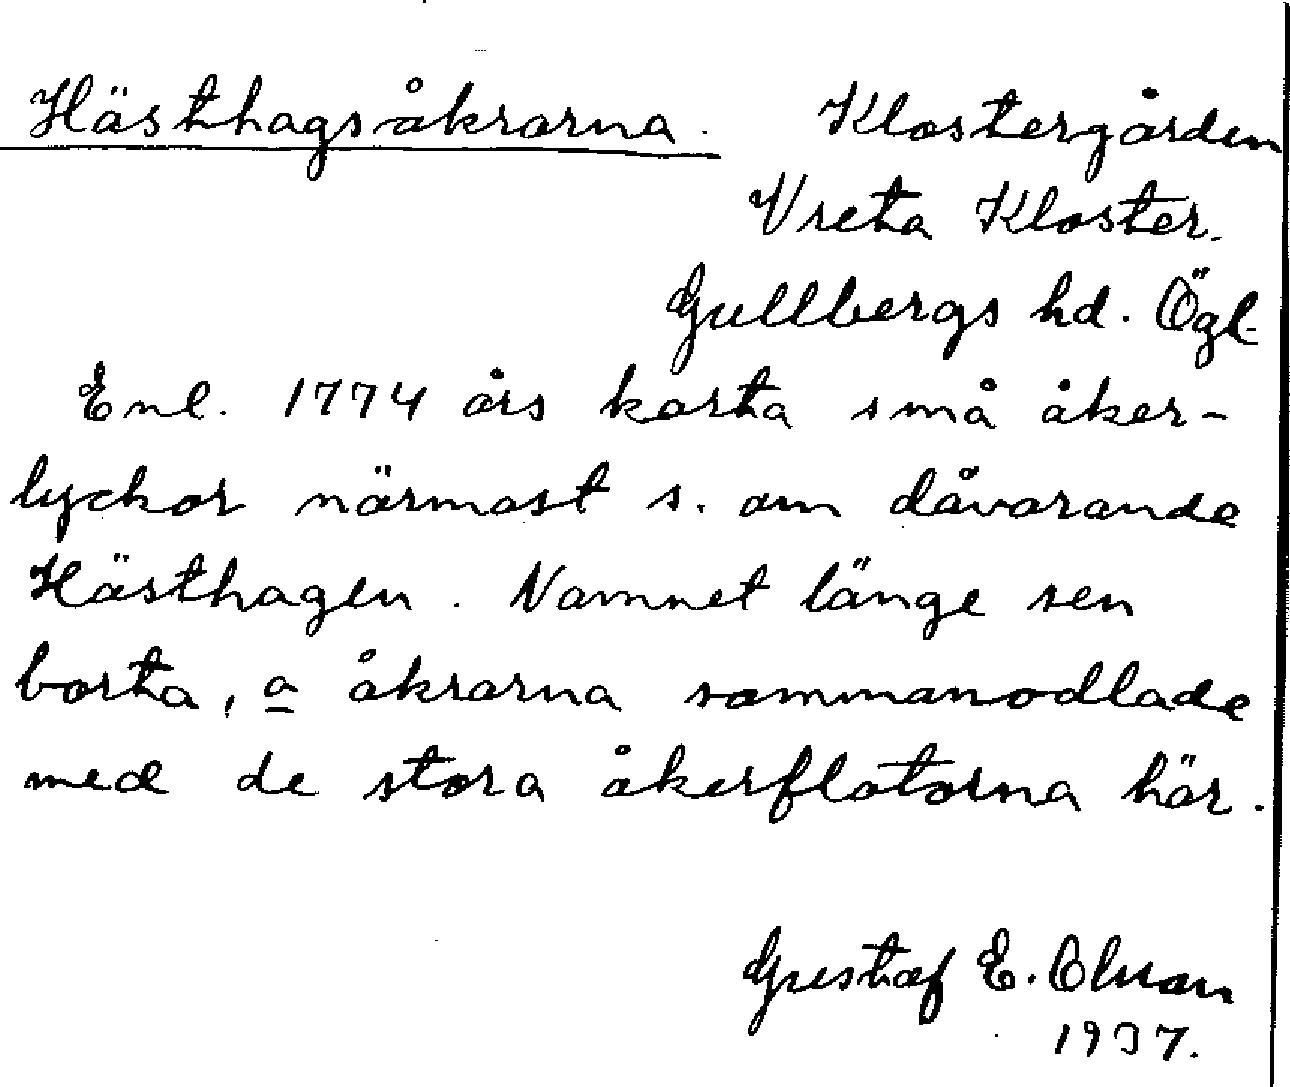 Hästhagsåkrarna. Klostergården
Vreta Kloster.
Gullbergs hd. Ögl.
Enl. 1774 års karta små åker-
lyckor närmast s. om dåvarande
Hästhagen. Namnet länge sen
borta, a åkrarna sammanodlade
med de stora åkerflatorna här.
Gustaf E. Olsson
1937.